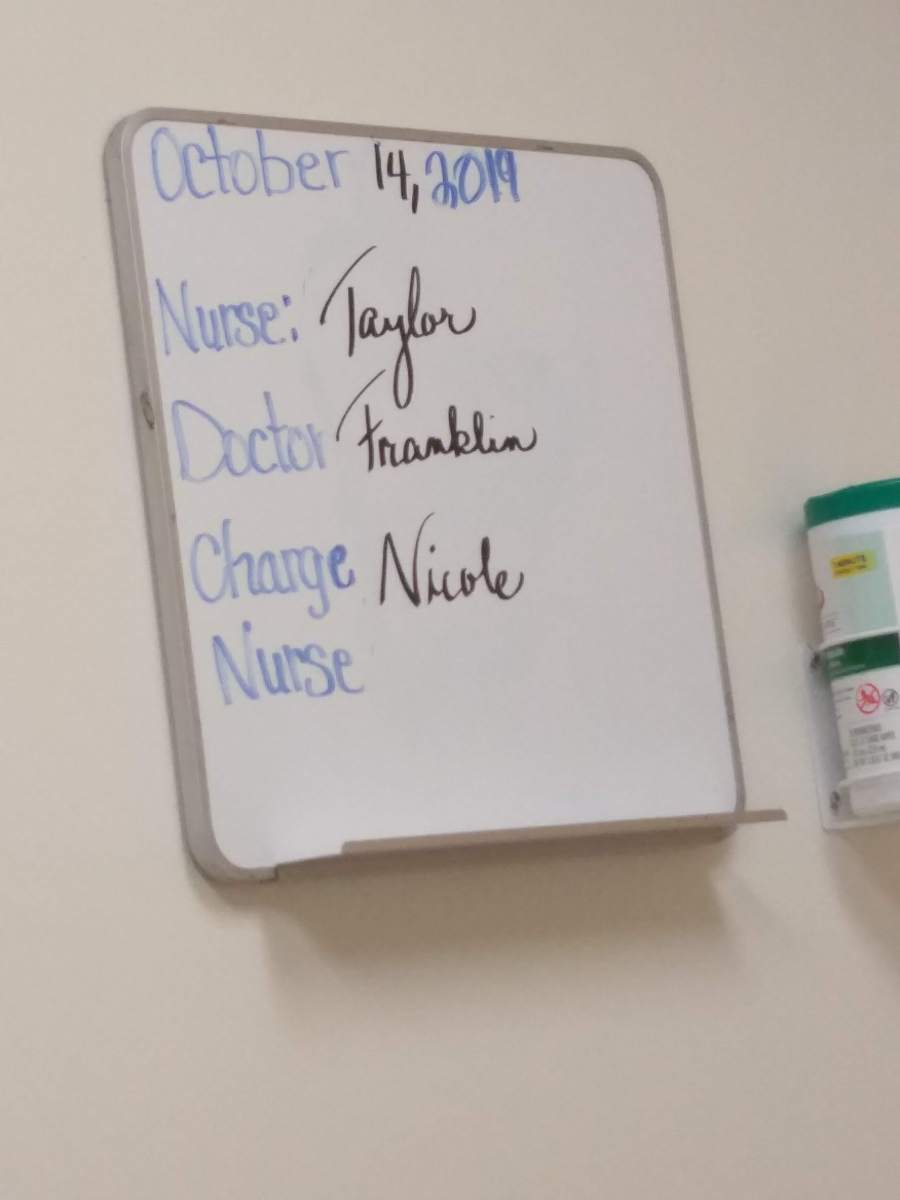 October 14, 2019
Nurse: Taylor
Doctor Franklin
Charge Nicole
Nurse
1 MINUTE